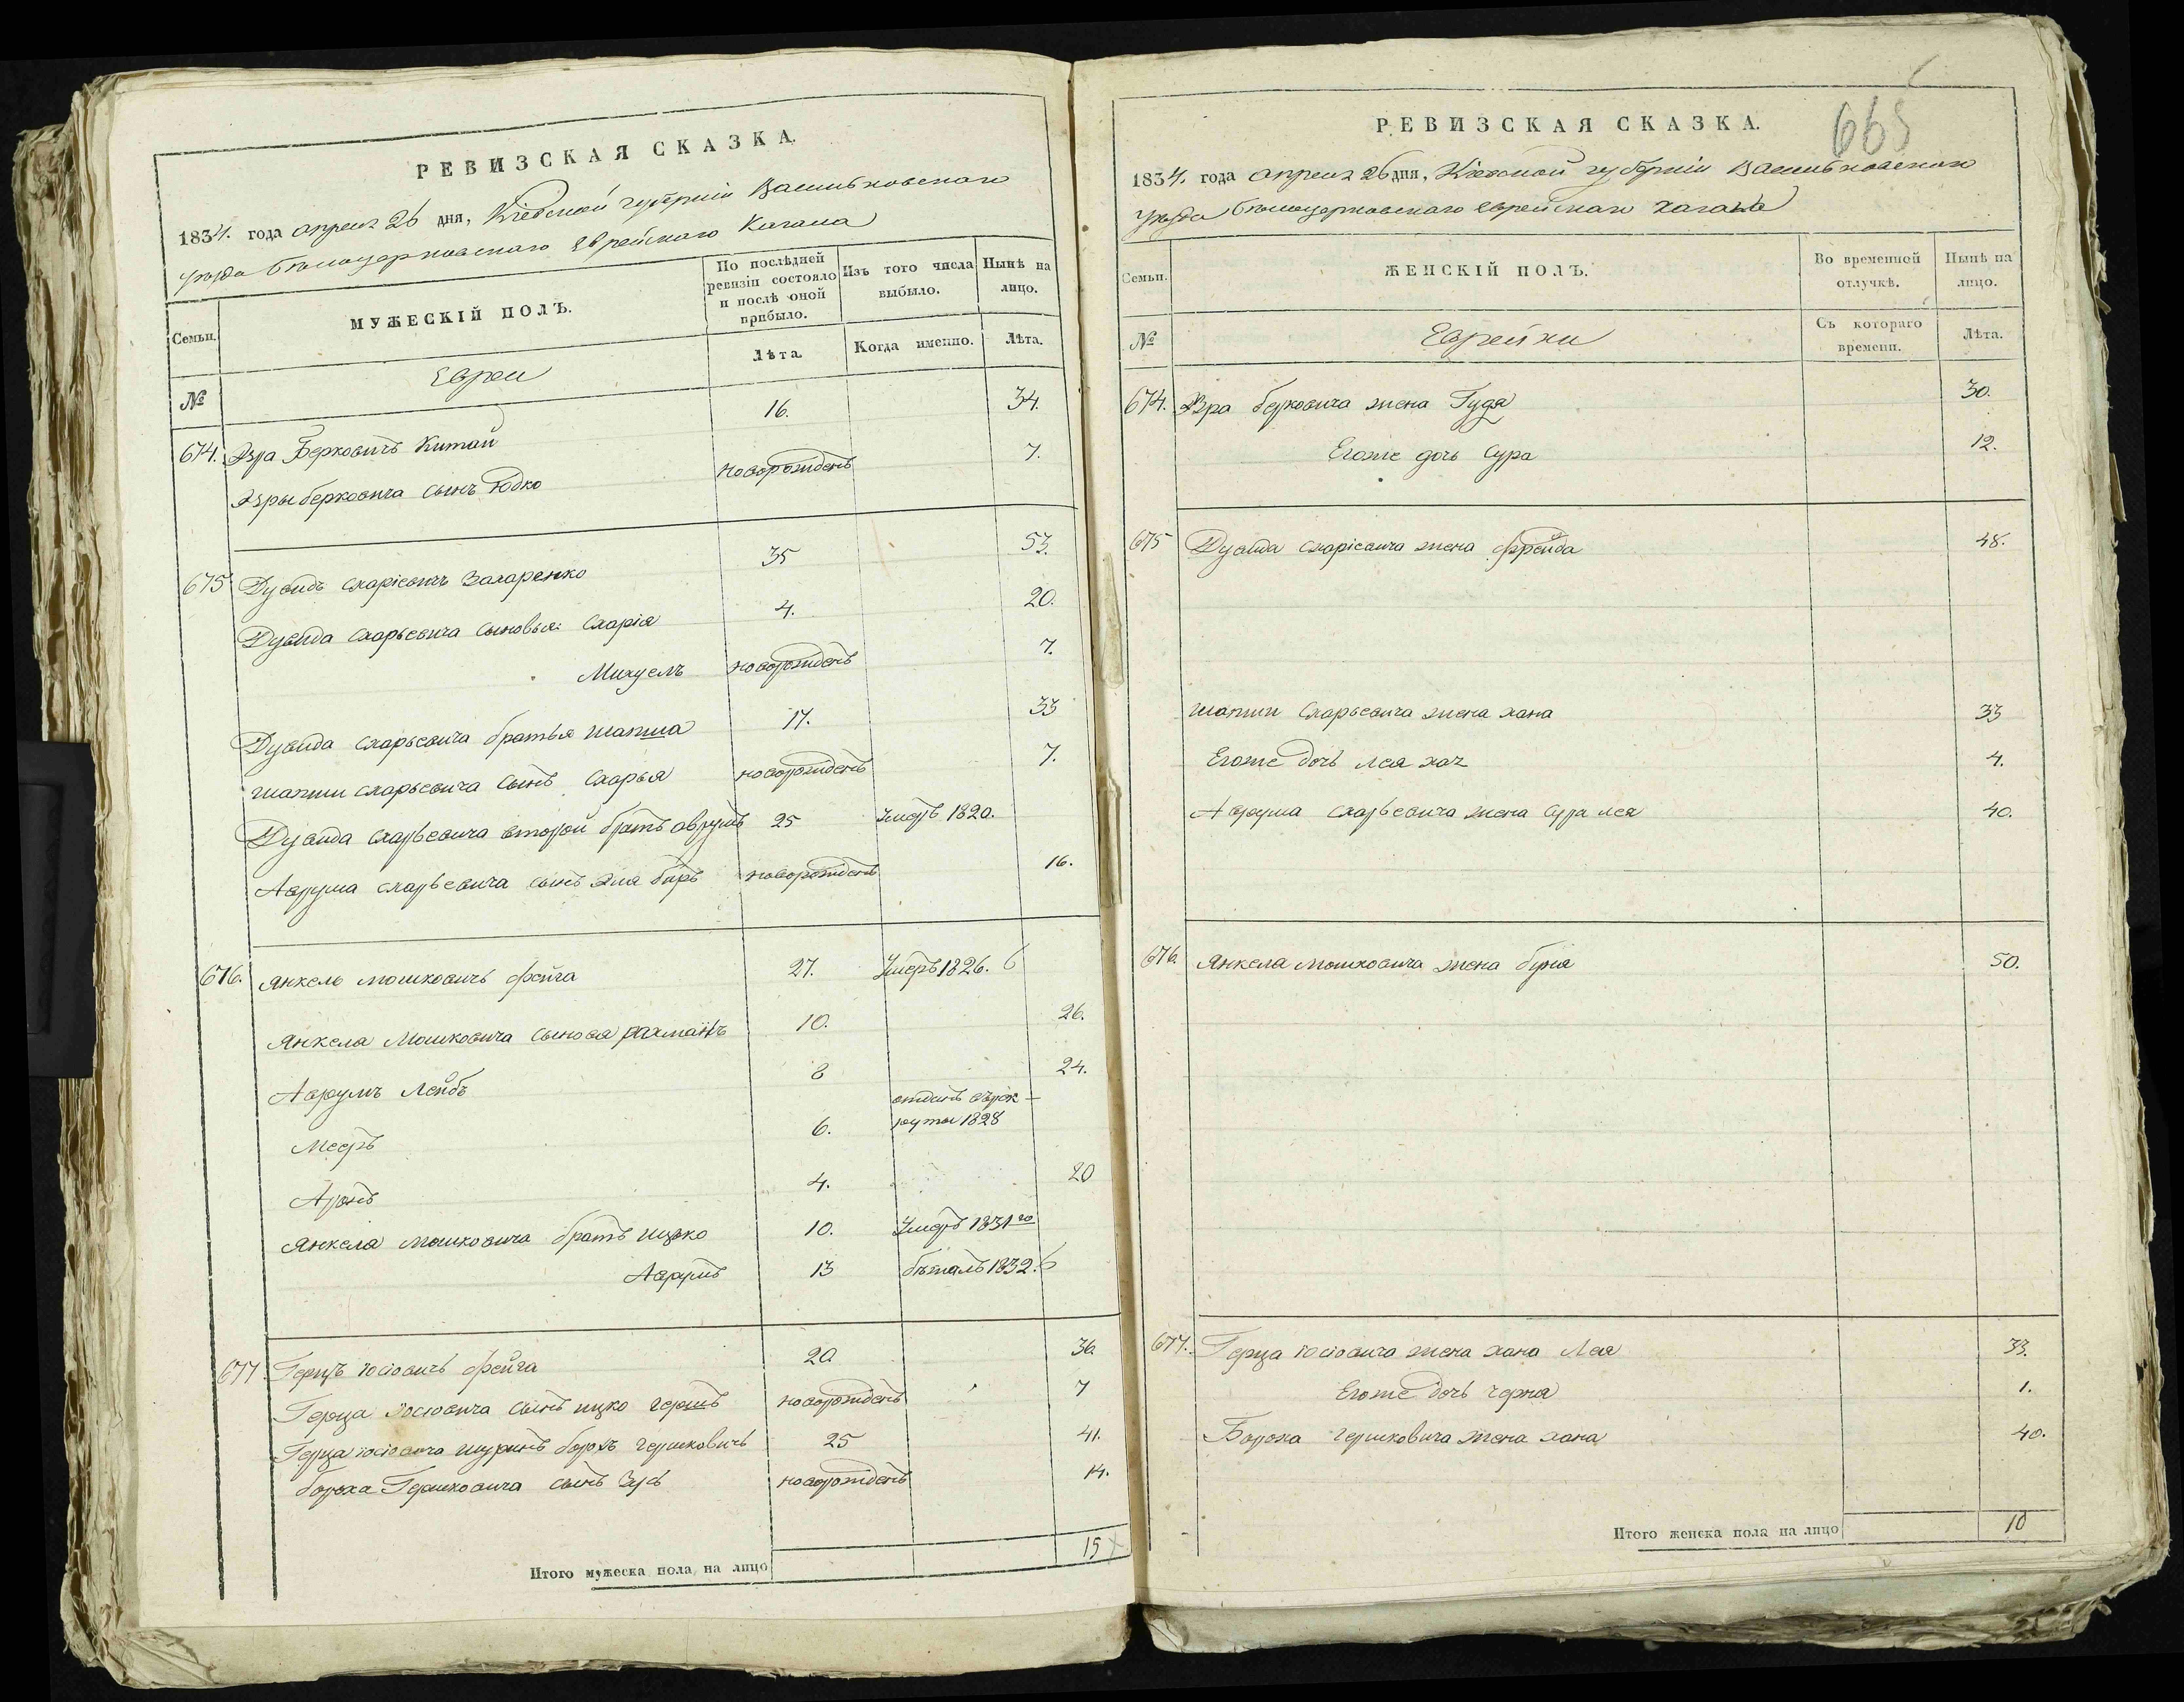 РЕВИЗСКАЯ СКАЗКА.
1834. года апреля 26 дня, Кіевской губерніи Васильковскаго
уѣзда бѣлоцерковскаго Еврейскаго Кагала
Семьи.
МУЖЕСКІЙ ПОЛЪ.
По послѣдней ревизіи состояло и послѣ оной прибыло.
Изъ того числа выбыло.
Нынѣ на лицо.
Лѣта.
Когда именно.
Лѣта.
№
Евреи
674. Эзра Берковичъ Китай 16. 34.
Эзры берковича сынъ Юдко новорожденъ 7.
675 Дувидъ схаріевичъ Захаренко 35 53.
Дувида Схарьевича сыновья: Схарія 4. 20.
Михуелъ новорожденъ 7.
Дувида схарьевича братья шапша 17. 33
шапши схарьевича сынъ Схарья новорожденъ 7.
Дувида схарьевича второй братъ аврумъ 25 Умеръ 1820.
Аврума схарьевича сынъ Эля беръ новорожденъ 16.
676. Янкель мошковичъ фейга 27. Умеръ 1826.
Янкеля Мошковича сыновя рахманъ 10. 26.
Аврумъ Лейбъ 8 24.
Мееръ 6. отданъ въ рек-
руты 1828
Аронъ 4. 20
Янкеля мошковича братъ ицко 10. Умеръ 1831го
Аврумъ 13 бѣжалъ 1832.
677 Герцъ іосіовичъ фейга 20 36
Герца іосіовича сынъ ицко гершъ новорожденъ 7
Герца іосіовича шуринъ борхъ гершковичъ 25 41.
борха Гершковича сынъ Зусь новорожденъ 14.
Итого мужеска пола на лицо 15
665
РЕВИЗСКАЯ СКАЗКА.
1834. года апреля 26 дня, Кіевской губерніи Васильковскаго
уѣзда бѣлоцерковскаго еврейскаго кагала
Семьи.
ЖЕНСКІЙ ПОЛЪ.
Во временной отлучкѣ.
Нынѣ на лицо.
№
Еврейки
Съ котораго времени.
Лѣта.
674. Эзра берковича жена Гудя 30.
Егоже дочь Сура 12.
675 Дувида схаріевича жена фрейда 48.
шапши Схарьевича жена хана 33
Егоже дочь лея хая 4.
Аврума схарьевича жена сура лея 40.
676. Янкеля мошковича жена буня 50.
677. Герца іосіовича жена хана Лея 33.
Егоже дочь черна 1.
Бороха гершковича жена хана 40.
Итого женска пола на лицо 10